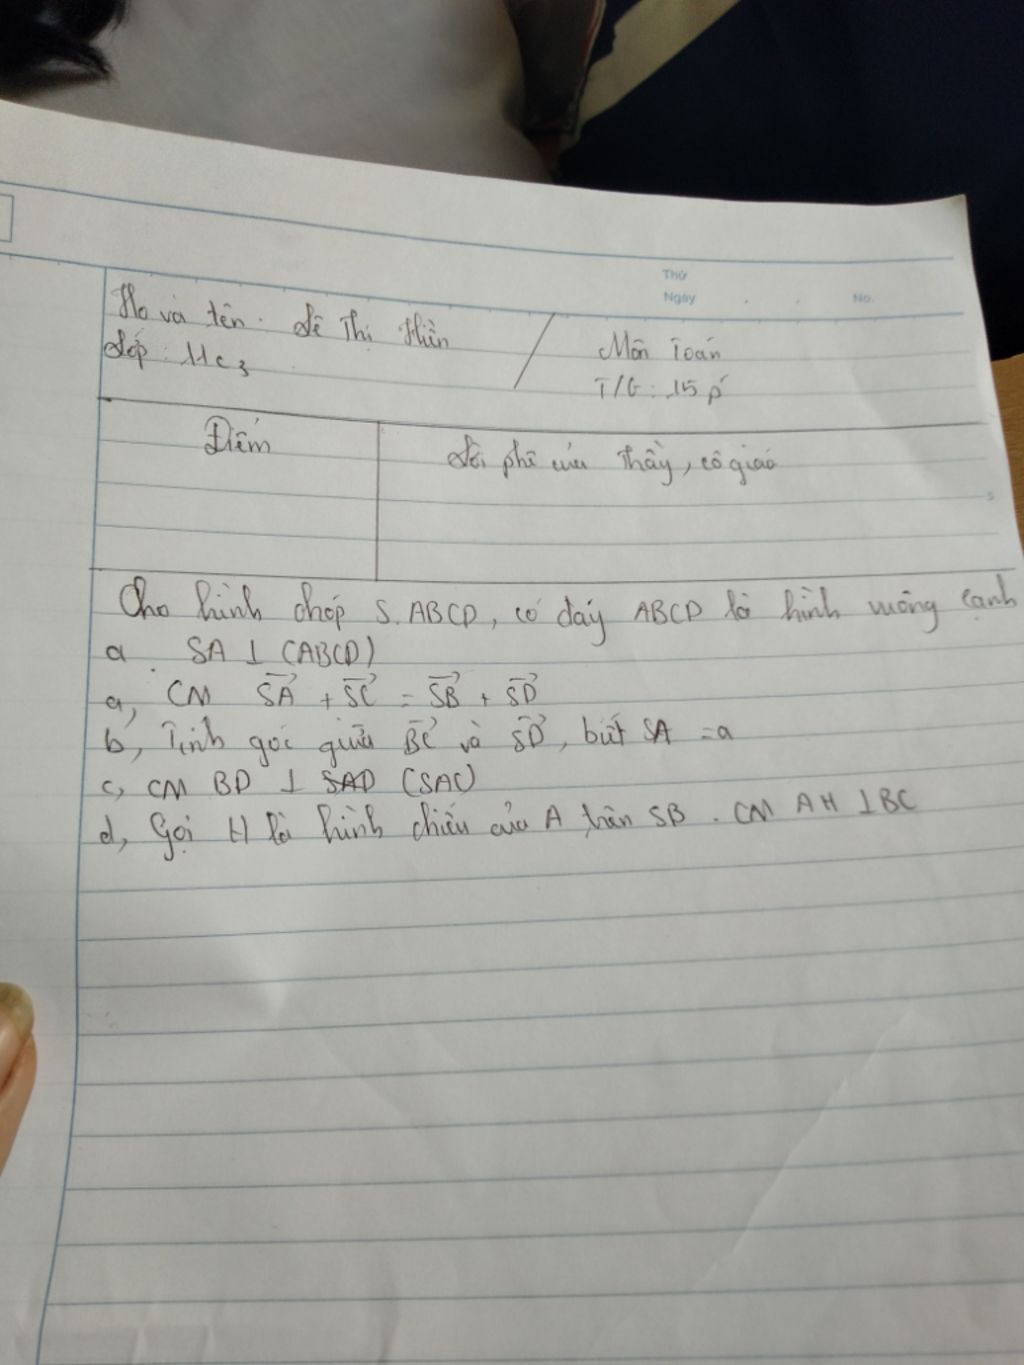 Thứ
Ngày . . No.
Họ và tên. Lê Thị Hiền
Lớp : 11c3
Môn Toán
T/G: 15 p'
Điểm
Lời phê của Thầy, cô giáo
Cho hình chóp S.ABCD, có đáy ABCD là hình vuông cạnh
a. SA ⊥ (ABCD)
a, CM SA⃗ + SC⃗ = SB⃗ + SD⃗
b, Tính góc giữa BC⃗ và SD⃗, biết SA = a
c, CM BD ⊥ SAD (SAC)
d, Gọi H là hình chiếu của A trên SB. CM AH ⊥ BC